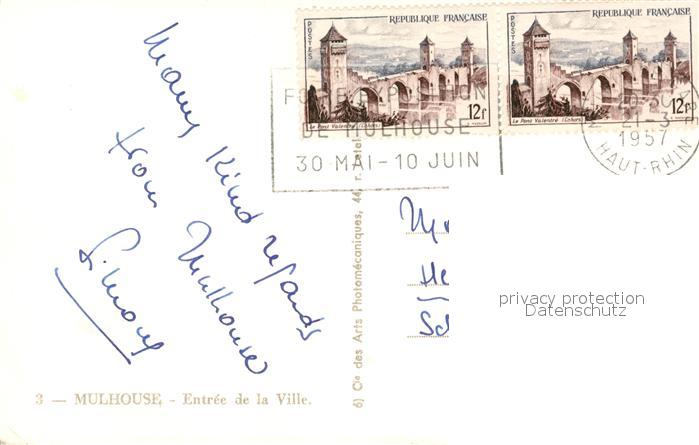 Many Kind regards
from Mulhouse
Simone
3 — MULHOUSE - Entrée de la Ville.
6) Cie des Arts Photomécaniques, 44, r.
POSTES
REPUBLIQUE FRANÇAISE
12f
Le Pont Valentré (Cahors)
POSTES
REPUBLIQUE FRANÇAISE
12f
Le Pont Valentré (Cahors)
DE MULHOUSE
30 MAI - 10 JUIN
21-3
1957
HAUT-RHIN
Mr
He
Sc
privacy protection
Datenschutz